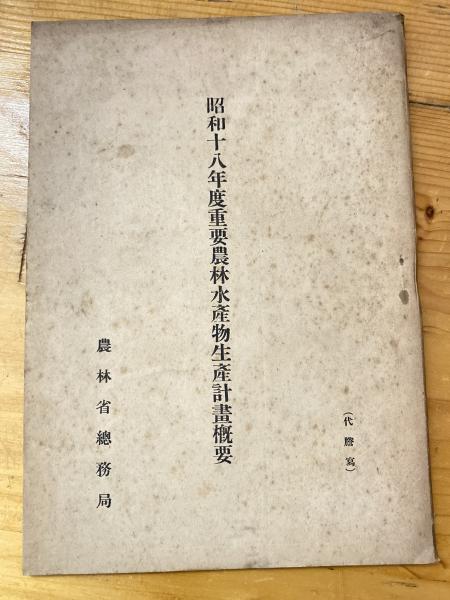 (代謄寫)
昭和十八年度重要農林水產物生產計畫槪要
農林省總務局